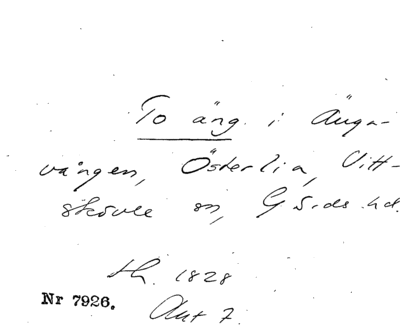 To äng i Änga-
vången, Österlia, Vitt-
skövle sn, Gärds hd.
th. 1828
Nr 7926. Akt 7.